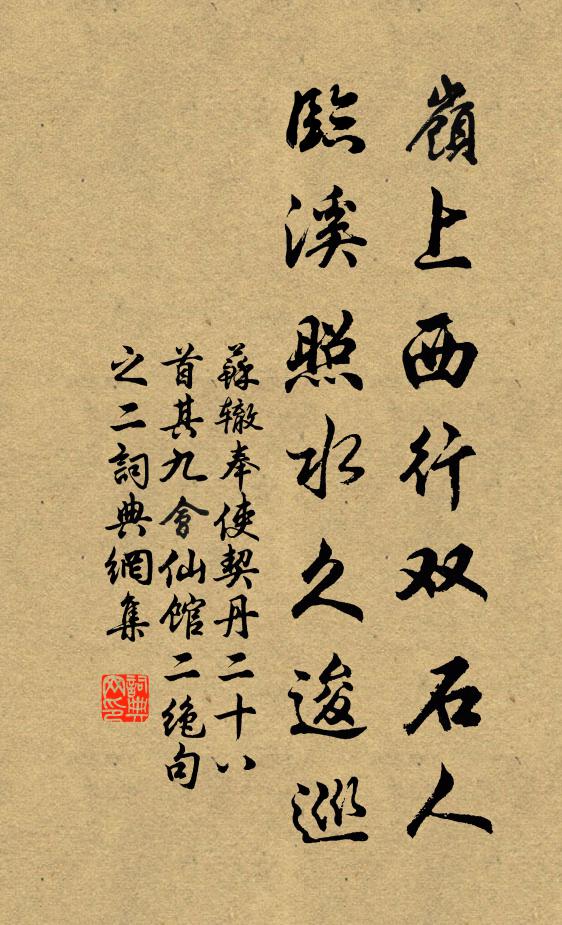 嶺上西行双石人
臨溪照水久逡巡
蘇辙奉使契丹二十八
首其九會仙馆二绝句
之二詞典網集
詞典
网印